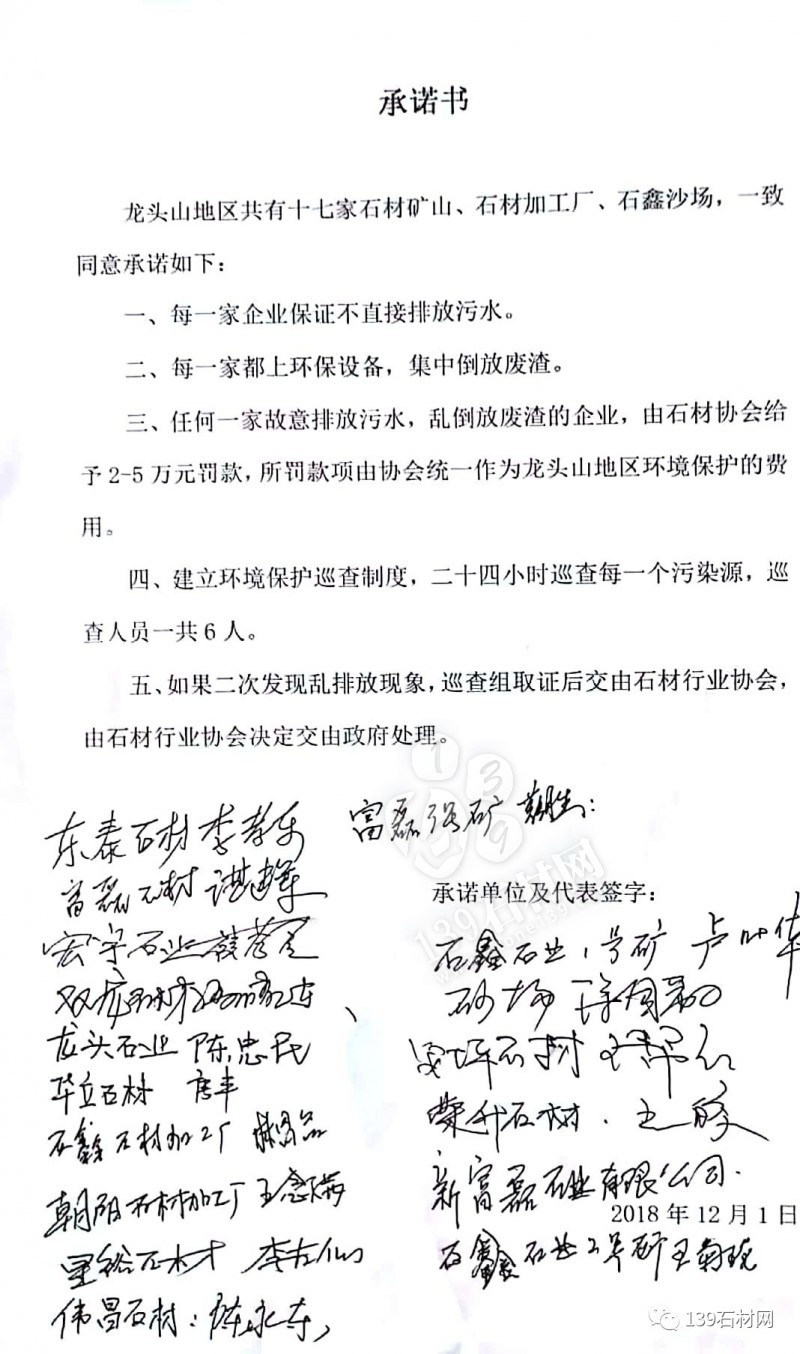 承诺书
龙头山地区共有十七家石材矿山、石材加工厂、石鑫沙场，一致
同意承诺如下：
一、每一家企业保证不直接排放污水。
二、每一家都上环保设备，集中倒放废渣。
三、任何一家故意排放污水，乱倒放废渣的企业，由石材协会给
予2-5万元罚款，所罚款项由协会统一作为龙头山地区环境保护的费
用。
四、建立环境保护巡查制度，二十四小时巡查每一个污染源，巡
查人员一共6人。
五、如果二次发现乱排放现象，巡查组取证后交由石材行业协会，
由石材行业协会决定交由政府处理。
东泰石材 李孝乐
富磊石材
宏宇石业
龙头石业 陈忠民
华立石材 唐丰
石鑫石材加工厂
朝阳石材加工厂 王念满
石材
伟昌石材：陈永东
富磊 矿
承诺单位及代表签字：
石鑫石业1号矿 卢 华
砂场
石材
荣升石材．王
新富磊石业有限公司．
2018年12月1日
石鑫石业2号矿 王菊琬
139石材网
139石材网